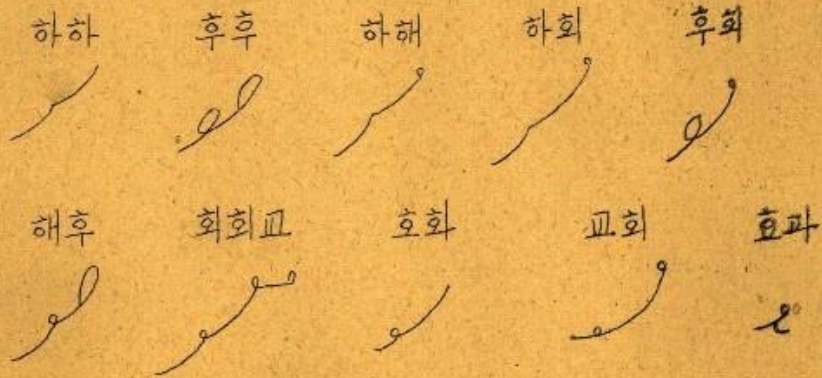 하하 후후 하해 하회 후회
해후 회회교 호화 교회 효과